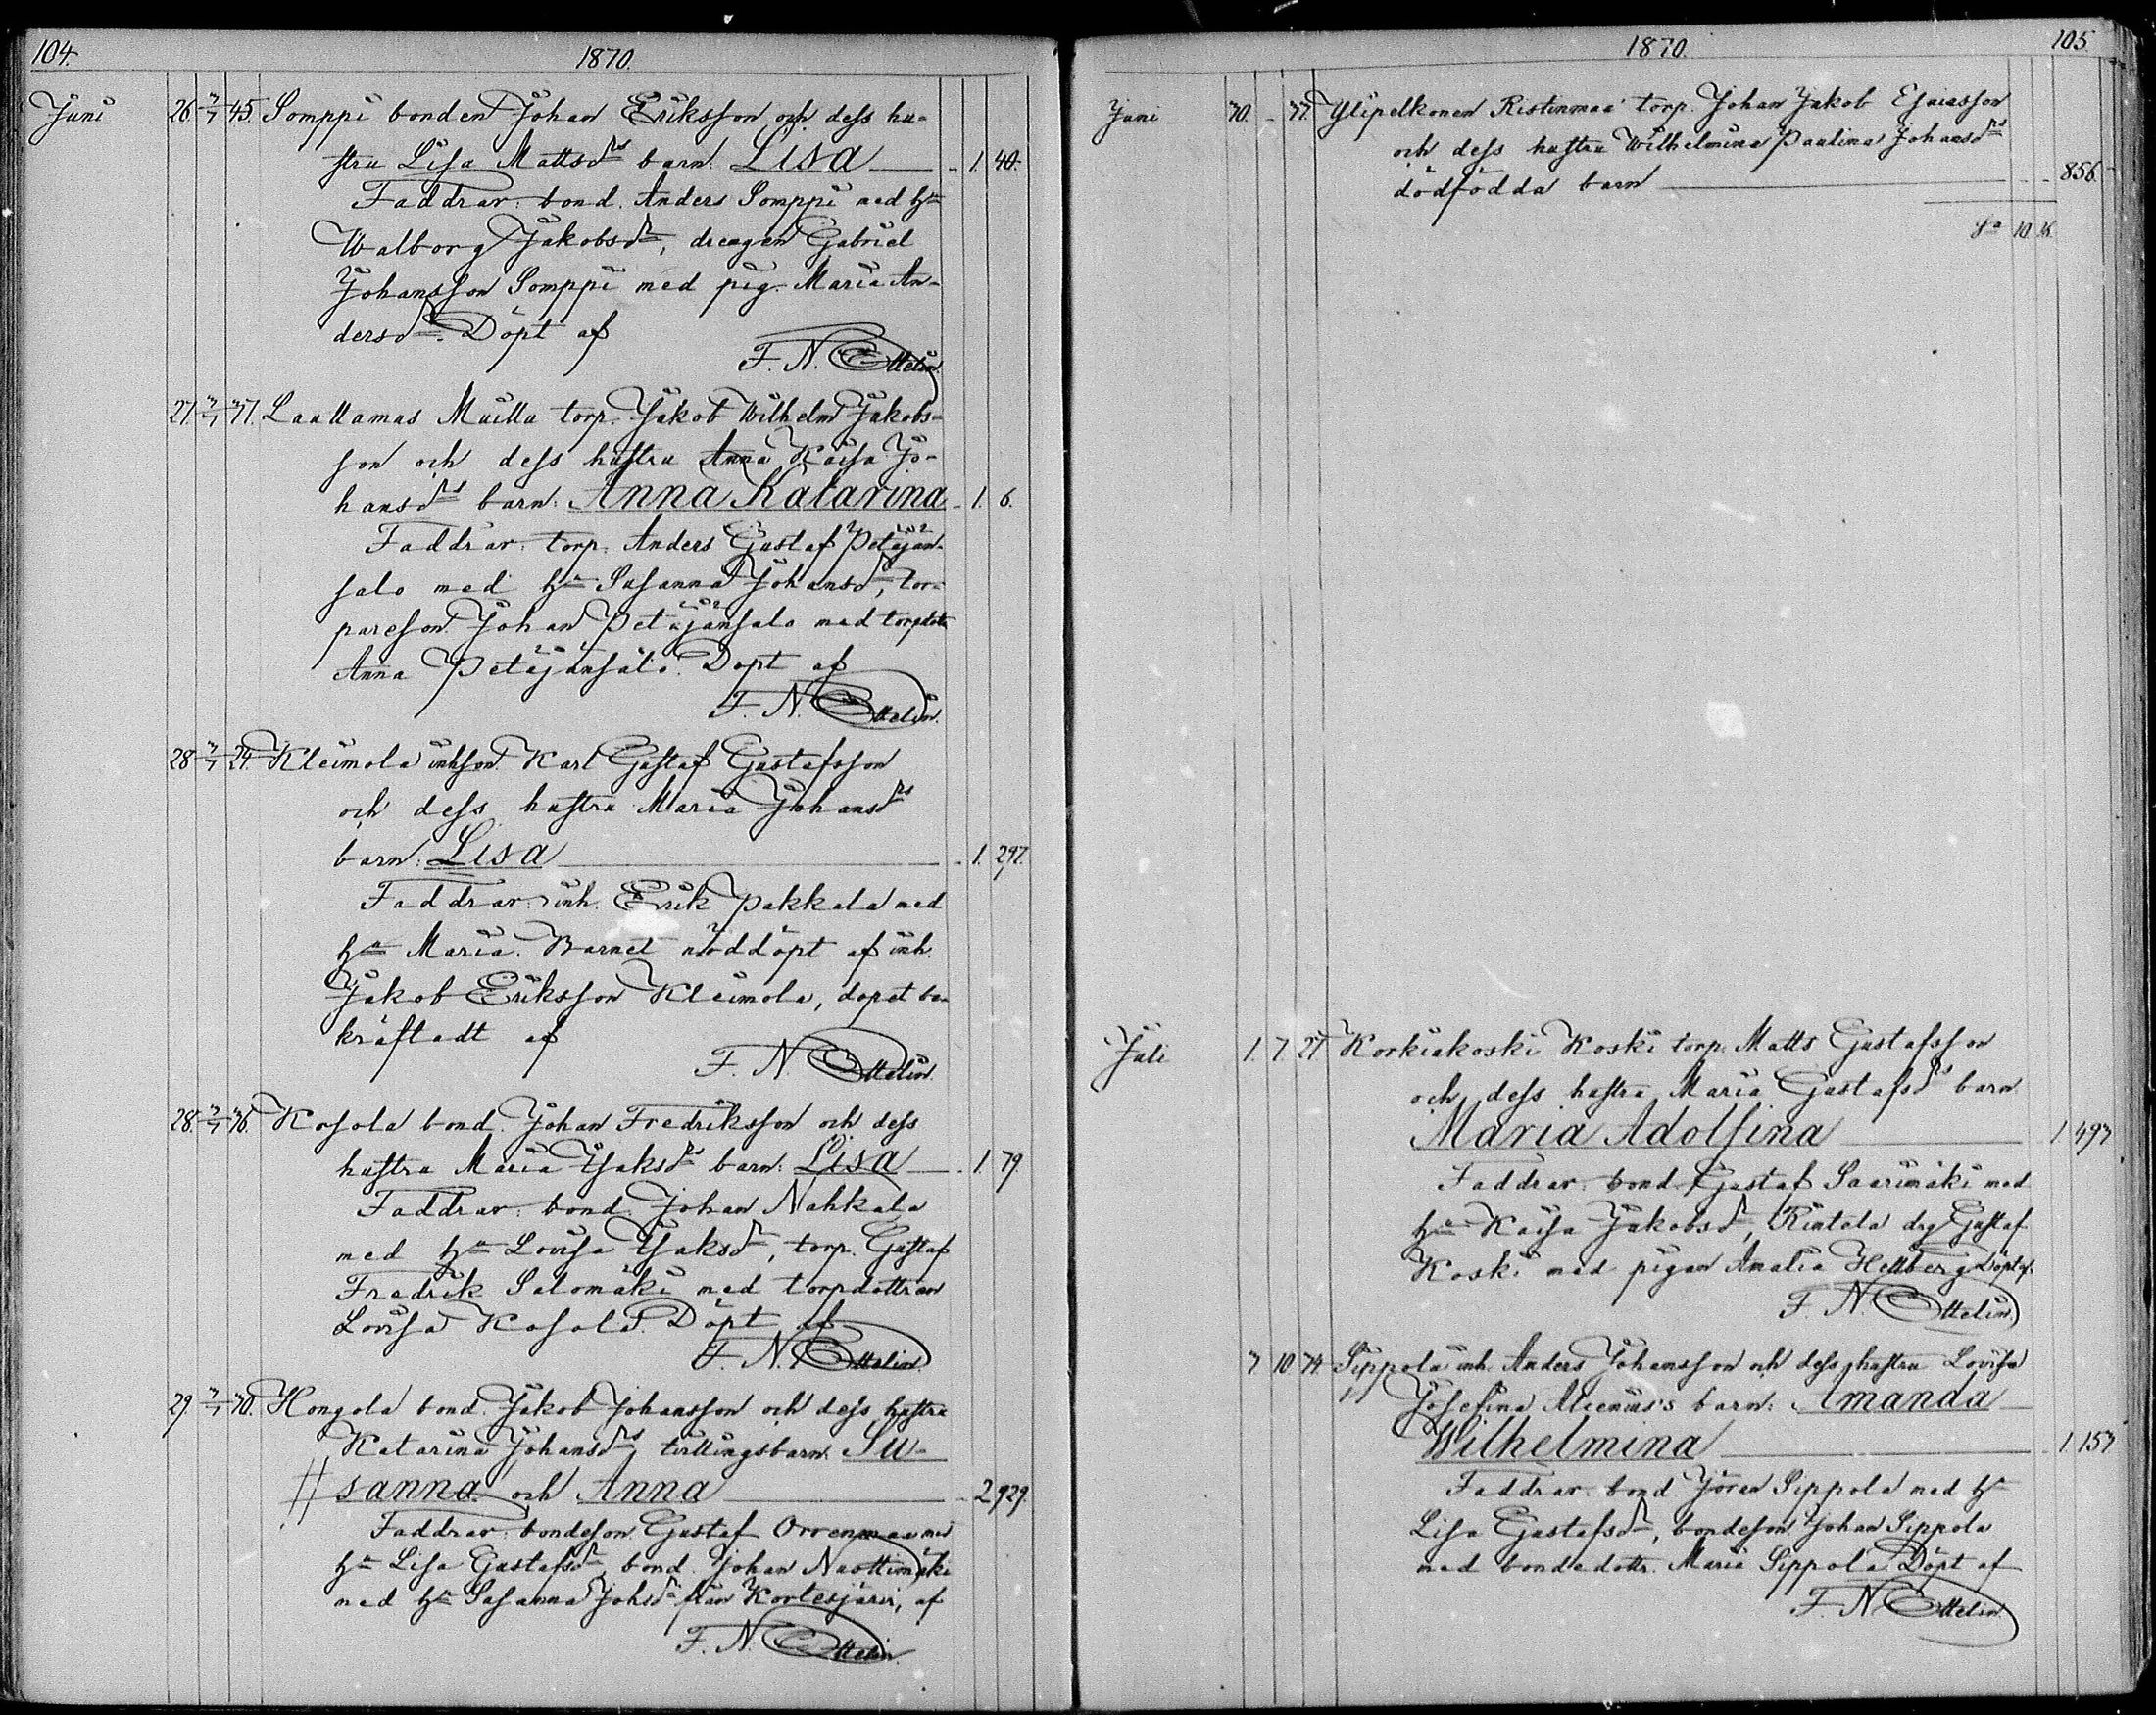 104.
1870.
Juni 26. 3/7 45. Somppi bonden Johan Eriksson och dess hu-
stru Lisa Mattsdrs barn: Lisa 1. 40.
Faddrar: bond. Anders Somppi med hu
Walborg Jakobsdr, drengen Gabriel
Johansson Somppi med pig. Maria An-
dersdr. Döpt af
F. N. Ottelin.
27. 3/7 37. Laattamas Muilu torp. Jakob Wilhelm Jakobs-
son och dess hustru Anna Kaisa Jo-
hansdrs barn: Anna Katarina 1. 6.
Faddrar: torp. Anders Gustaf Petäjän-
salo med hu Susanna Johansdr, tor-
pareson Johan Petäjänsalo med torpdotr
Anna Petäjänsalo. Döpt af
F. N. Ottelin.
28. 3/7 24. Kleimola inhson Karl Gustaf Gustafsson
och dess hustru Maria Johansdrs
barn: Lisa 1. 297.
Faddrar: inh. Erik Pakkala med
hu Maria. Barnet nöddöpt af inh.
Jakob Eriksson Kleimola, dopet be-
kräftadt af
F. N. Ottelin.
28. 3/7 36. Kosola bond. Johan Fredriksson och dess
hustru Maria Isaksdrs barn: Lisa 1. 79.
Faddrar: bond. Johan Nahkala
med hu Lovisa Isaksdr, torp. Gustaf
Fredrik Salomäki med torpdottren
Lovisa Kosola. Döpt af
F. N. Ottelin.
29. 3/7 30. Hongola bond. Jakob Johansson och dess hustru
Katarina Johansdrs tvillingsbarn: Su-
# sanna och Anna 2. 929.
Faddrar: bondeson Gustaf Orrenmaa med
hu Lisa Gustafsdr, bond. Johan Naottimäki
med hu Susanna Johsdr från Kortesjärvi, af
F. N. Ottelin.
1870.
105
Juni 30. - 37. Ylipelkonen Ristinmaa torp. Johan Jakob Esaiasson
och dess hustru Wilhelmina Paulina Johansdrs
dödfödda barn 856.
Sa 10 16.
Juli 1. 7 27 Korkiakoski Koski torp. Matts Gustafsson
och dess hustru Maria Gustafsdrs barn
Maria Adolfina 1 493
Faddrar: bond. Gustaf Saarimäki med
hu Kaisa Jakobsdr, Rintala drg Gustaf
Koski med pigan Amalia Hellberg. Döpt af
F. N. Ottelin.
3 10 34. Sippola inh. Anders Johansson och dess hustru Lovisa
Josefina barn: Amanda
Wilhelmina 1 153
Faddrar: bond. Jöran Sippola med hu
Lisa Gustafsdr, bondeson Johan Sippola
med bondedottr. Maria Sippola. Döpt af
F. N. Ottelin.